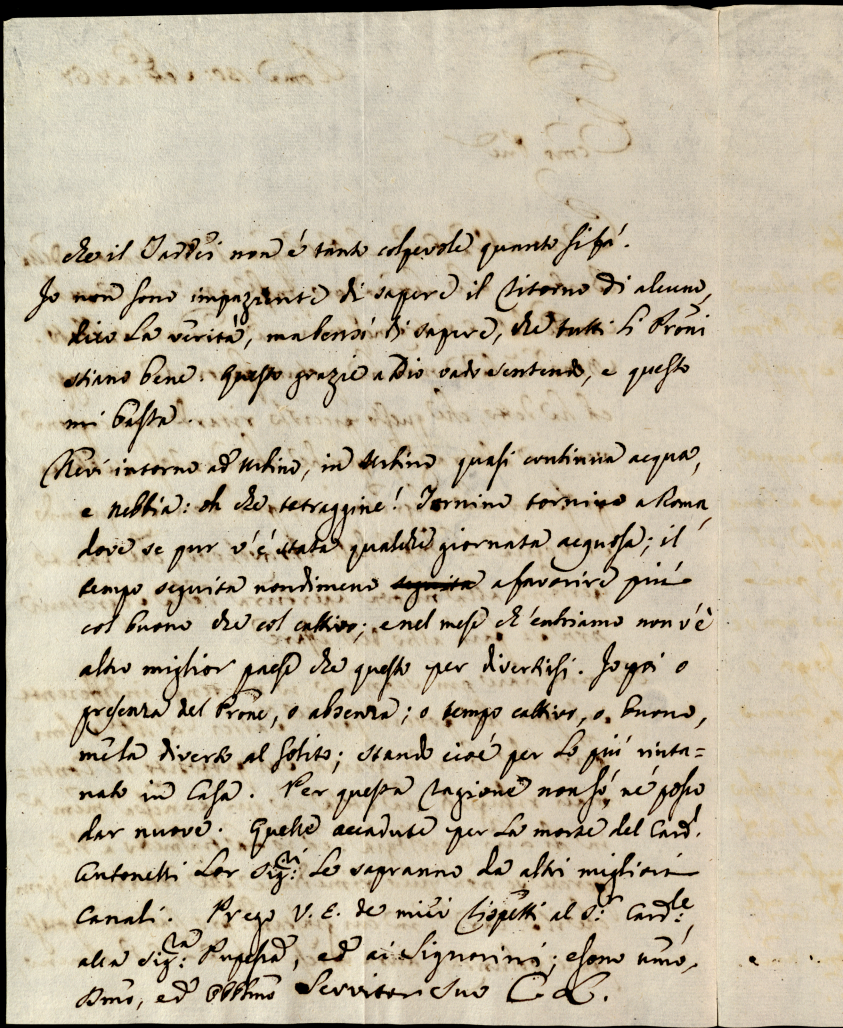 che il non é tanto colpevole quanto si fá.
Io non sono impaziente di sapere il ritorno di alcuno,
dico la veritá, ma bensí di sapere, che tutti li Proñi
stiano bene. Questo grazie a Dio vado sentendo, e questo
mi basta.
Nevi intorno ad Urbino, in Urbino quasi continua acqua,
e nebbia: oh che tetraggine! Tornino tornino a Roma,
dove se pur v'é stata qualche giornata acquosa; il
tempo seguita nondimeno seguita a favorire piú
col buono che col cattivo; e nel mese ch'entriamo non v'è
altro miglior paese che questo per divertirsi. Io poi o
presenza del Proñe, o absenza; o tempo cattivo, o buono,
me la diverto al solito; stando cioé per lo piú rinta=
nato in Casa. Per questa ragione non só, né posso
dar nuove. Quelle accadute per la morte del Card.
Antonelli Lor Sig:ri le sapranno da altri migliori
Canali. Prego V. E. de miei rispetti al S:r Card:le,
alla Sig:ra Pupessa, ed ai Signorini; e sono umõ,
Dmõ, ed Obblmõ Servitor suo C. L.